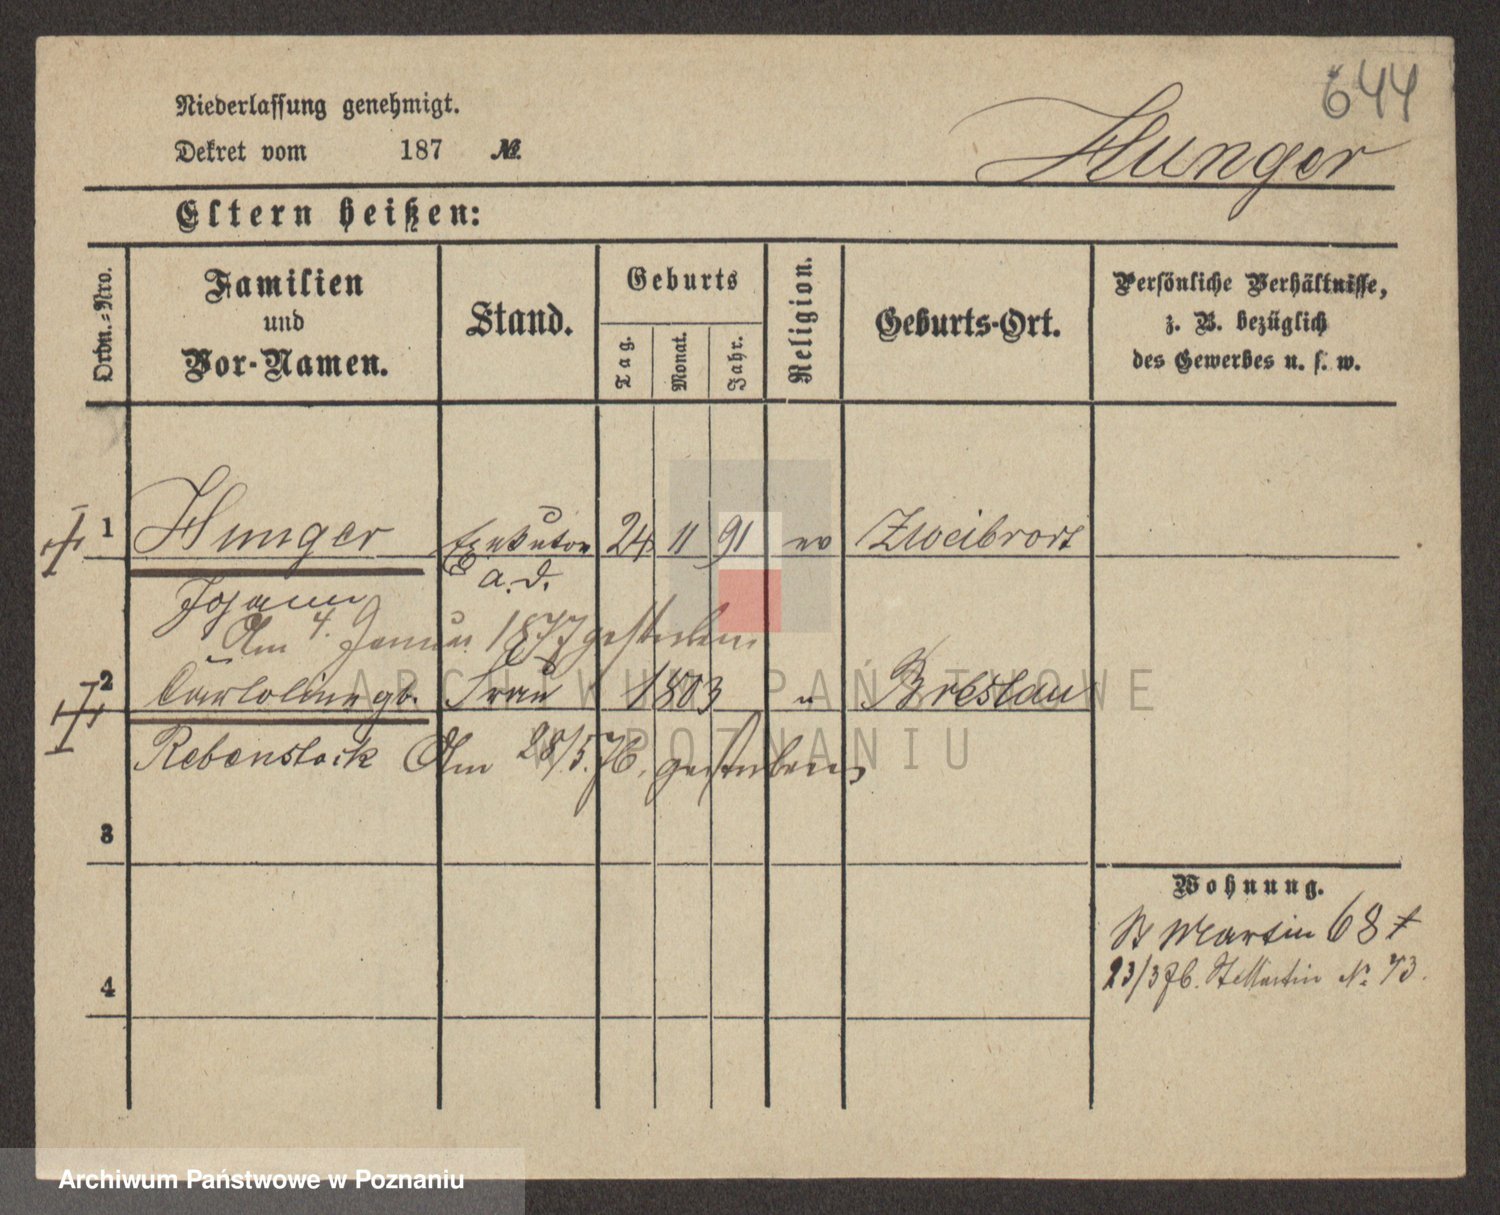 644
Niederlassung genehmigt.
Dekret vom 187 №.
Hunger
Eltern heißen:
Ordn.-Nro.
Familien und Vor-Namen.
Stand.
Geburts
Tag.
Monat.
Jahr.
Religion.
Geburts-Ort.
Persönliche Verhältnisse, z. B. bezüglich des Gewerbes u. s. w.
1 Hunger Exekutor 24 11 91 ev
a. D.
Johann
Am 4. Januar 1877 gestorben
2 gb. Frau 1803 " Breslau
Rebenstock Am 28/5.76. gestorben
3
Wohnung.
St Martin 68 †
4
23/3 76. St Martin № 73.
ARCHIWUM PAŃSTWOWE
W POZNANIU
Archiwum Państwowe w Poznaniu